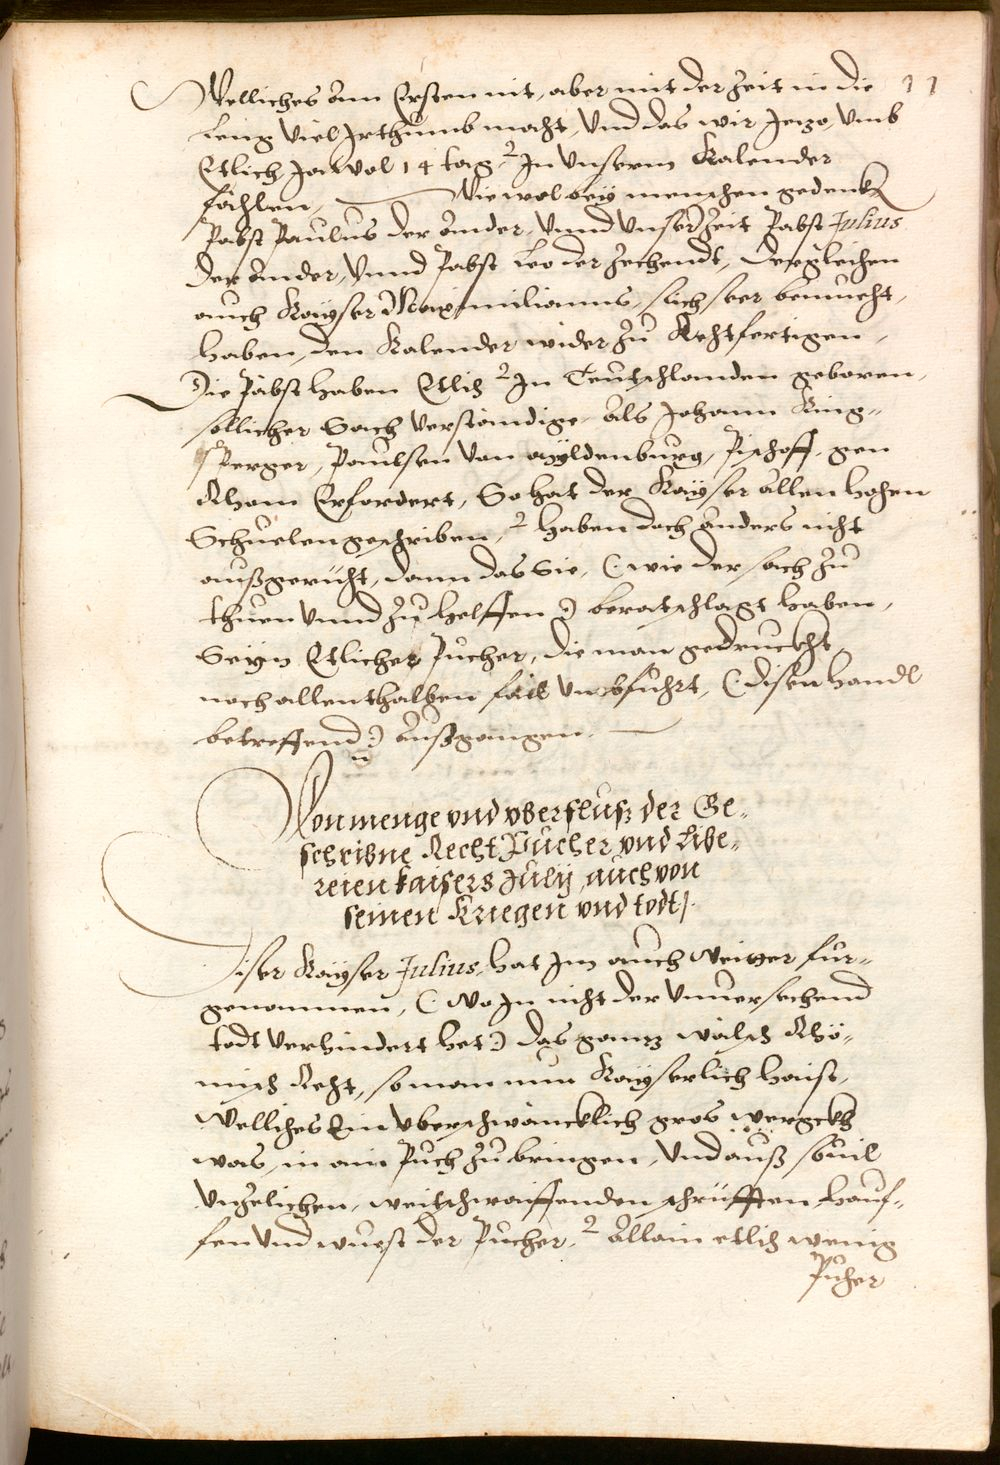 Welliches am Ersten nit, aber mit der Zeit in die 11
leng Viel Irthumb macht, Vnd das wir Jezo, Vmb
Etlich Ja Wol 14 tag, In Vnserm Kalender
fählen, Wiewol bey menschen gedenckh
Pabst Paulus der Ander, Vnnd Vnser Zeit Pabst Julius
der Ander, Vnnd Pabst Leo der Zechendt, dergleichen
auch Kayser Maximilianus, sich seer bemueht,
haben, den Kalender wider Zu Rechtfertigen,
Die Päbst haben Etlich In Teutschlanden geboren,
sollicher Sach Verständige, Als Johann King-
sperger, Paulsen Von Myldenburg, Pischoff, gen
Rhom Erfordert, So hat der Kayser Allen hohen
Schuelen geschriben, haben doch Anders nicht
außgericht, dann das Sie, (: wie der sach Zu
thuen Vnnd Zu helffen :) beratschlagt haben,
Seyn Etlicher Pücher, die man gedruckht
noch allenthalben fail Vmbführt, (: disen handl
betreffend :) Außgangen.
Von menge vnd vberfluß der Ge-
schribne Recht Pücher vnd Libe-
reien kaisers Julij, auch von
seinen Kriegen vnd todt.
Diser Kayser Julius, hat Im auch Weitter für-
genommen, (: Wo In nicht der Vnuersechend
todt Verhindert het :) das gantz Wälsch Rhö-
misch Recht, so man nun Kayserlich haist,
Welliches Ein Vberschwäncklich gros Werckh
was, in ain Puch Zu bringen, Vnd auß souil
Vnzelichen, weitschwaiffenden schrüfften hauf-
fen Vnd wuest der Pücher, Allain etlich wenig
Pücher